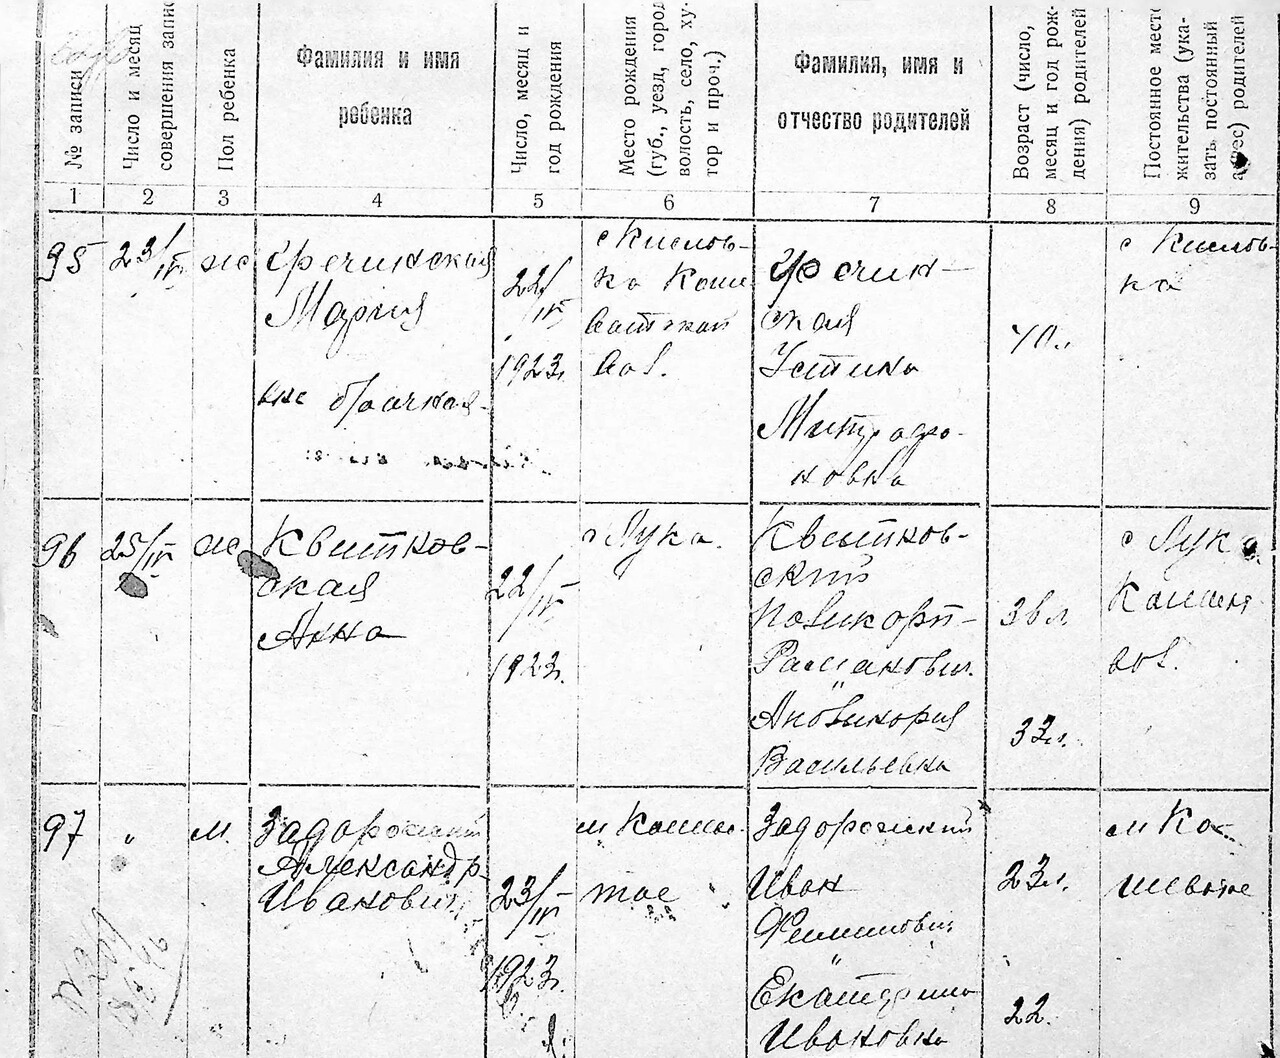 № записи
Число и месяц
совершения запис
Пол ребенка
Фамилия и имя
ребенка
Число, месяц и
год рождения
Место рождения
(губ., уезд, город
волость, село, ху-
тор и проч.)
Фамилия, имя и
отчество родителей
Возраст (число,
месяц и год рож-
дения) родителей
Постоянное мест
жительства (ука-
зать постоянный
адрес) родителей
1 2 3 4 5 6 7 8 9
95
23/IV
ж
Гречинская
Мария
вне брачная
22/IV
1923г.
с Кислов-
ка Коше
ватской
вол.
Гречин-
ская
Устина
Митрофа-
новна
40л.
с Кислов-
ка
96
25/IV
ж
Квитков-
ская
Анна
22/IV
1923г.
с Лука.
Квитков-
ский
Поликарп
Романович.
Васильевна
33л.
с Лука
вол.
97
"
м.
Задорожний
Александр
Иванович
23/IV
1923г.
м Кошева-
тое
Задорожний
Иван
Екатерина
Ивановна
23л.
22.
м Ко-
шеватое